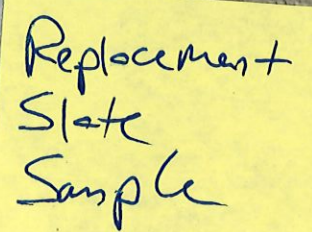 Replacement
Slate
Sample